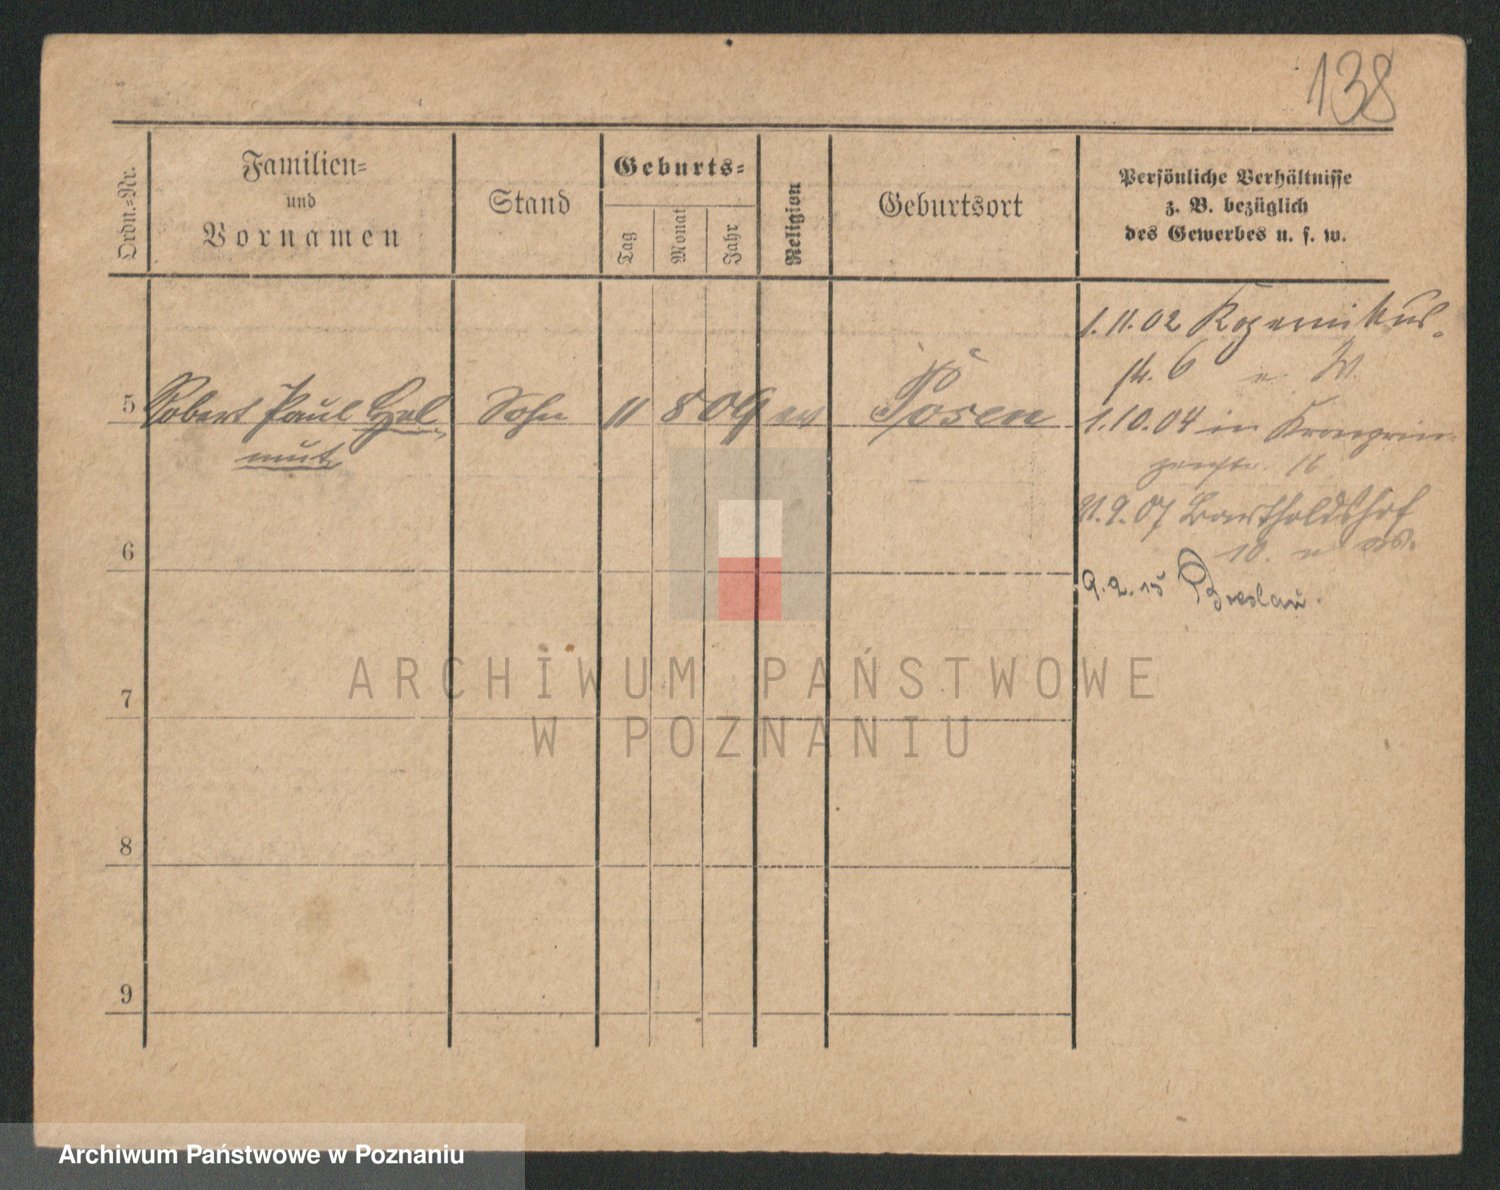 138
Ordn.-Nr.
Familien-
und
Vornamen
Stand
Geburts-
Tag
Monat
Jahr
Religion
Geburtsort
Persönliche Verhältnisse
z. B. bezüglich
des Gewerbes u. s. w.
1. 11. 02 Kopernikus-
str. 6 u W.
5 Robert Paul Hel-
mut
Sohn 11 8 09 ev Posen
1. 10. 04 in Kronprin-
zenstr.
9. 07 Bartholdshof
10. u
9. 2. 15 Breslau.
6
7
8
9
ARCHIWUM PAŃSTWOWE
W POZNANIU
Archiwum Państwowe w Poznaniu